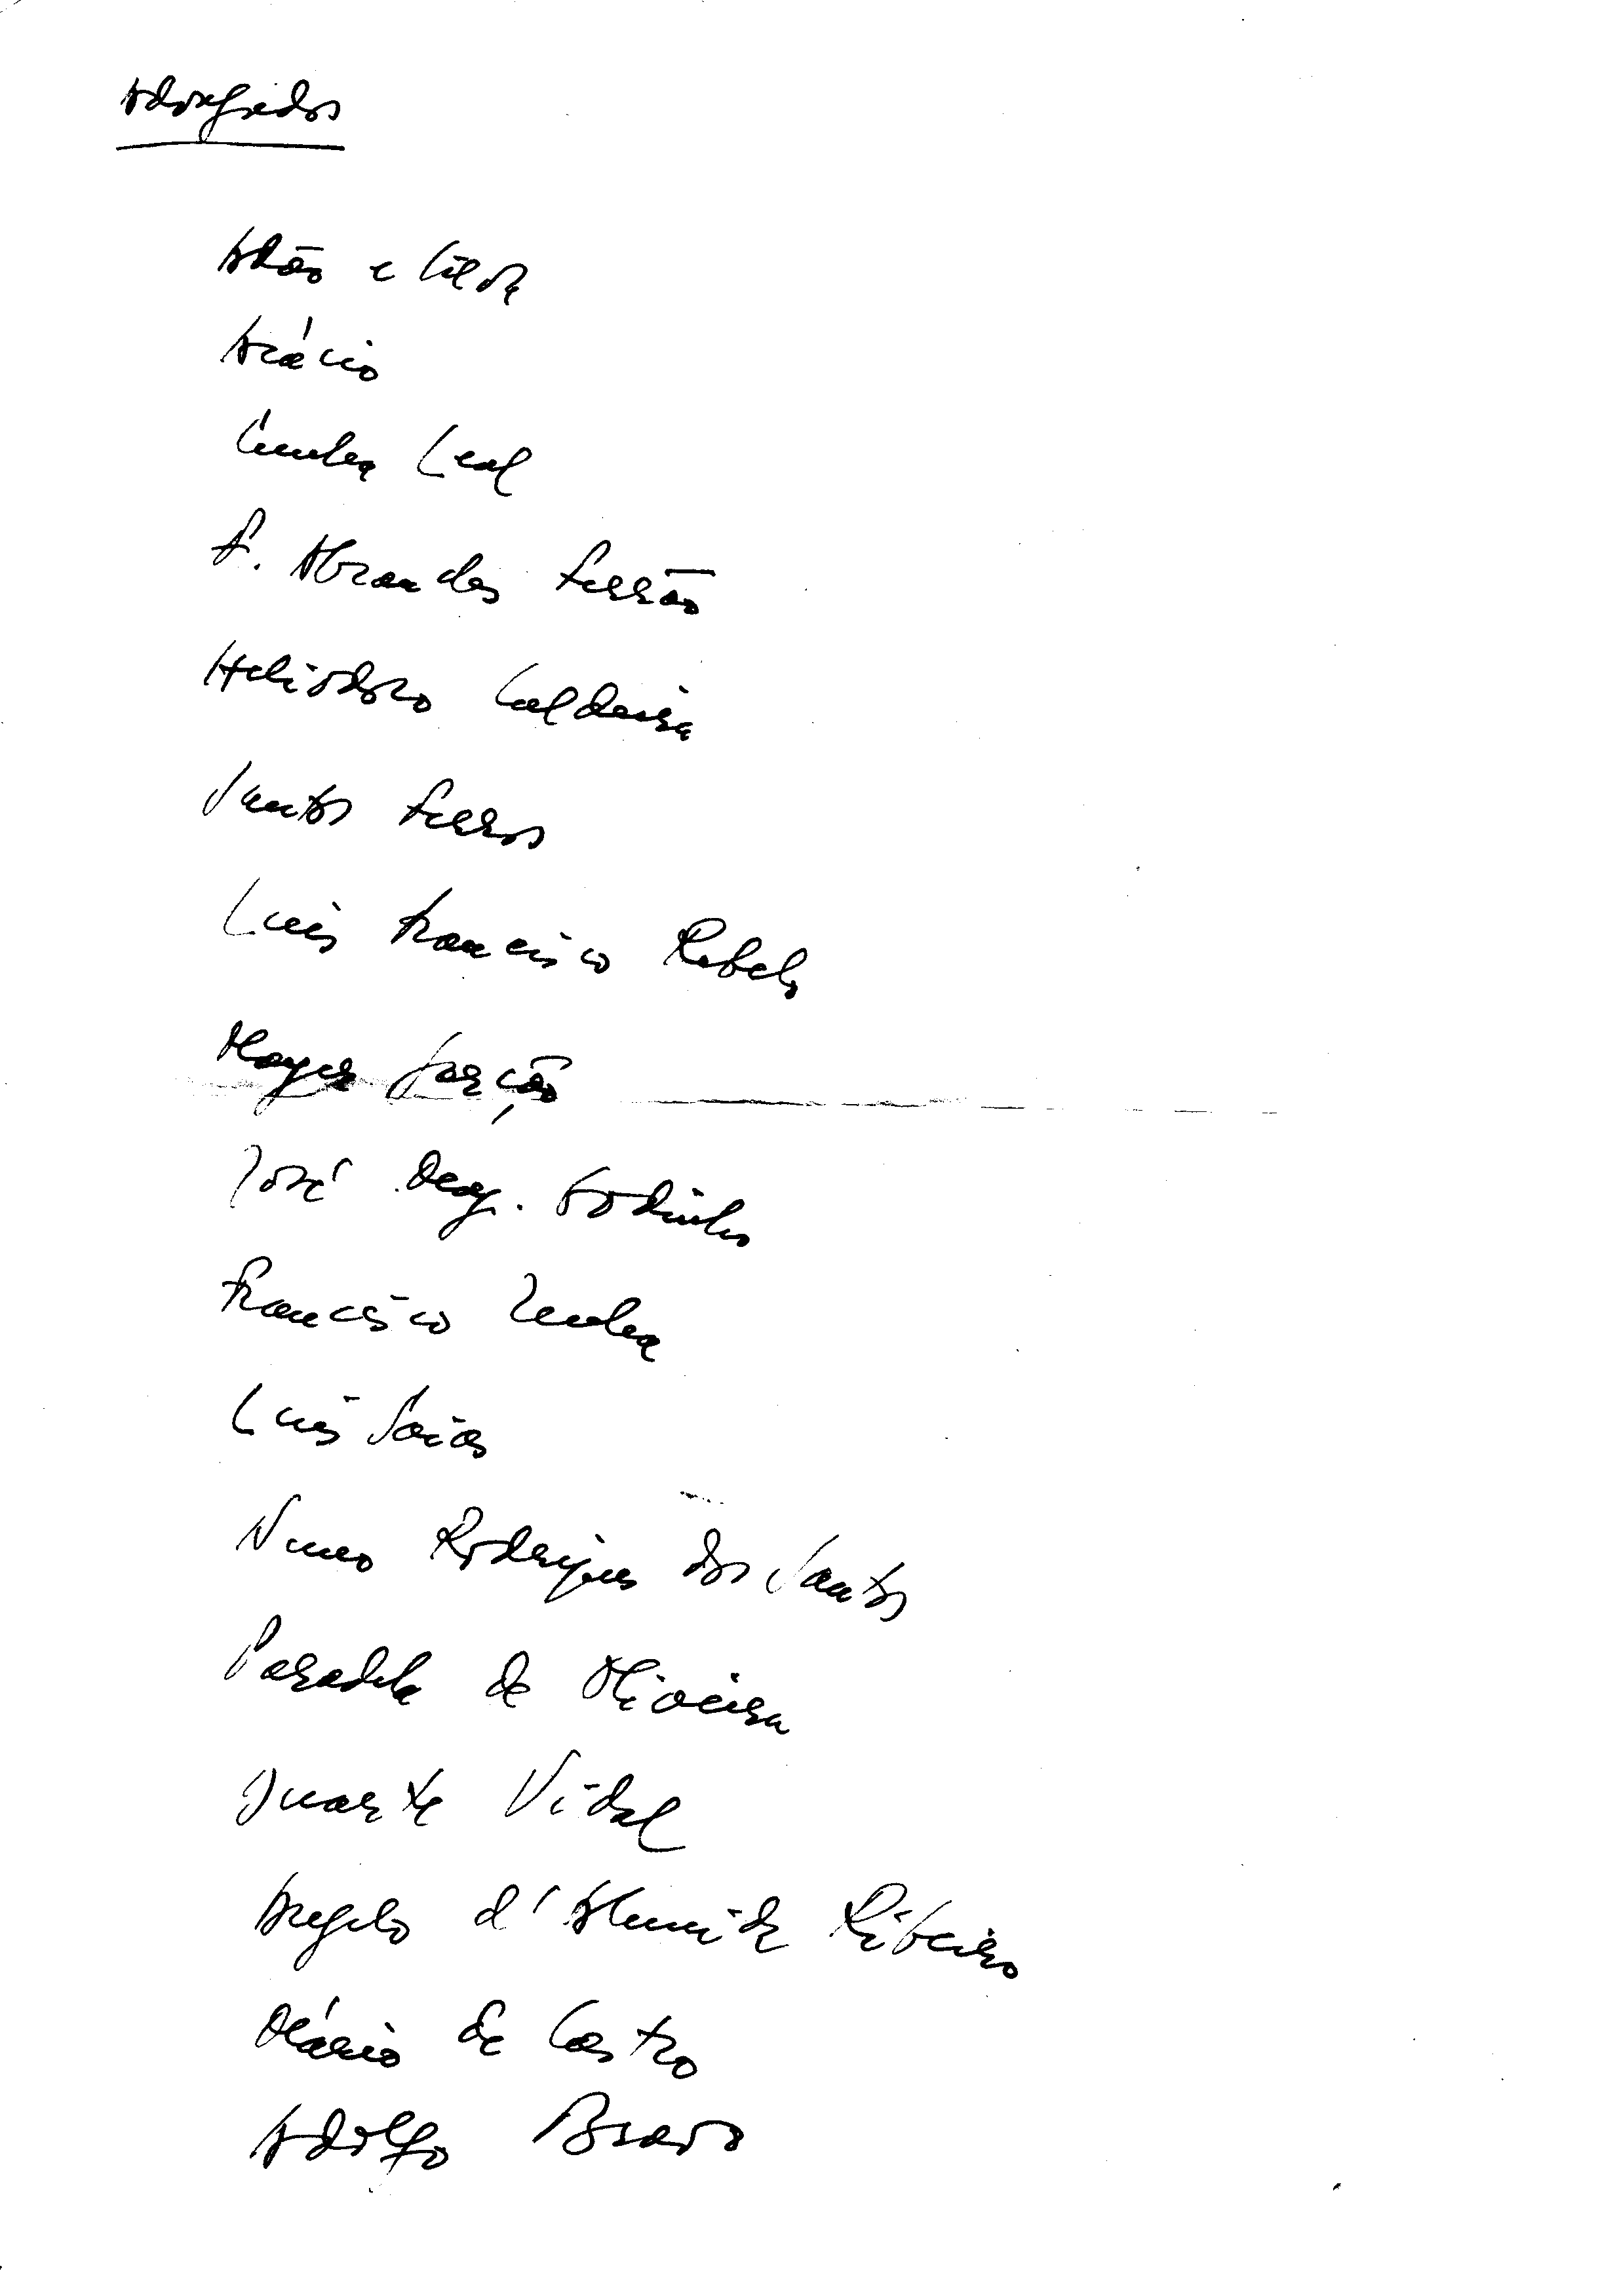 Advogados
Adão e Cilda
Acácio
Cunha Leal
F. Abranches Ferrão
Heliodoro Caldeira
Santos Ferro
Luís Francisco Rebelo
Mayer Garção
José Mag. Godinho
Francisco Zenha
Luís Saias
Nuno Rodrigues dos Santos
Paradela de Oliveira
Duarte Vidal
Angelo d'Almeida Ribeiro
Mário de Castro
Adolfo Bravo